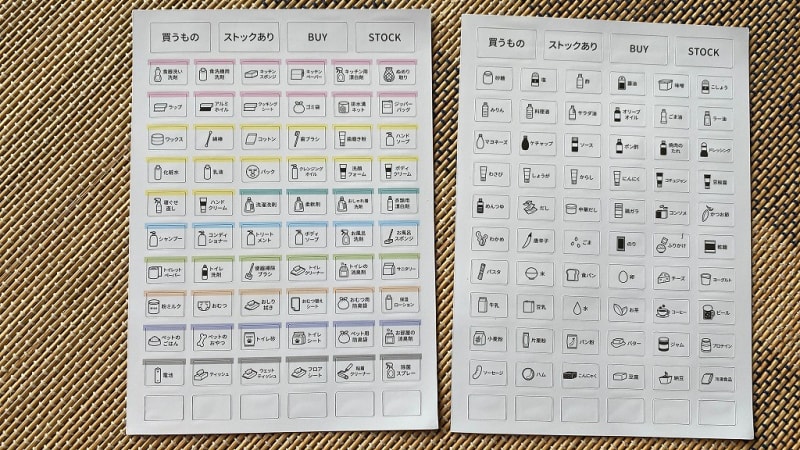 買うもの ストックあり BUY STOCK
食器洗い洗剤 食洗機用洗剤 キッチンスポンジ キッチンペーパー キッチン用漂白剤 ぬめり取り
ラップ アルミホイル クッキングシート ゴミ袋 排水溝ネット ジッパーバッグ
ワックス 綿棒 コットン 歯ブラシ 歯磨き粉 ハンドソープ
化粧水 乳液 パック クレンジングオイル 洗顔フォーム ボディクリーム
寝ぐせ直し ハンドクリーム 洗濯洗剤 柔軟剤 おしゃれ着洗剤 衣類用漂白剤
シャンプー コンディショナー トリートメント ボディソープ お風呂洗剤 お風呂スポンジ
トイレットペーパー トイレ洗剤 便器掃除ブラシ トイレクリーナー トイレの消臭剤 サニタリー
粉ミルク おむつ おしり拭き おむつ替えシート おむつ用防臭袋 保湿ローション
ペットのごはん ペットのおやつ トイレ砂 トイレシート ペット用防臭袋 お部屋の消臭剤
電池 ティッシュ ウェットティッシュ フロアシート 粘着クリーナー 除菌スプレー
買うもの ストックあり BUY STOCK
砂糖 塩 酢 醤油 味噌 こしょう
みりん 料理酒 サラダ油 オリーブオイル ごま油 ラー油
マヨネーズ ケチャップ ソース ポン酢 焼肉のたれ ドレッシング
わさび しょうが からし にんにく コチュジャン 豆板醤
めんつゆ だし 中華だし 鶏ガラ コンソメ かつお節
わかめ 唐辛子 ごま のり ふりかけ 乾麺
パスタ 米 食パン 卵 チーズ ヨーグルト
牛乳 豆乳 水 お茶 コーヒー ビール
小麦粉 片栗粉 パン粉 バター ジャム プロテイン
ソーセージ ハム こんにゃく 豆腐 納豆 冷凍食品